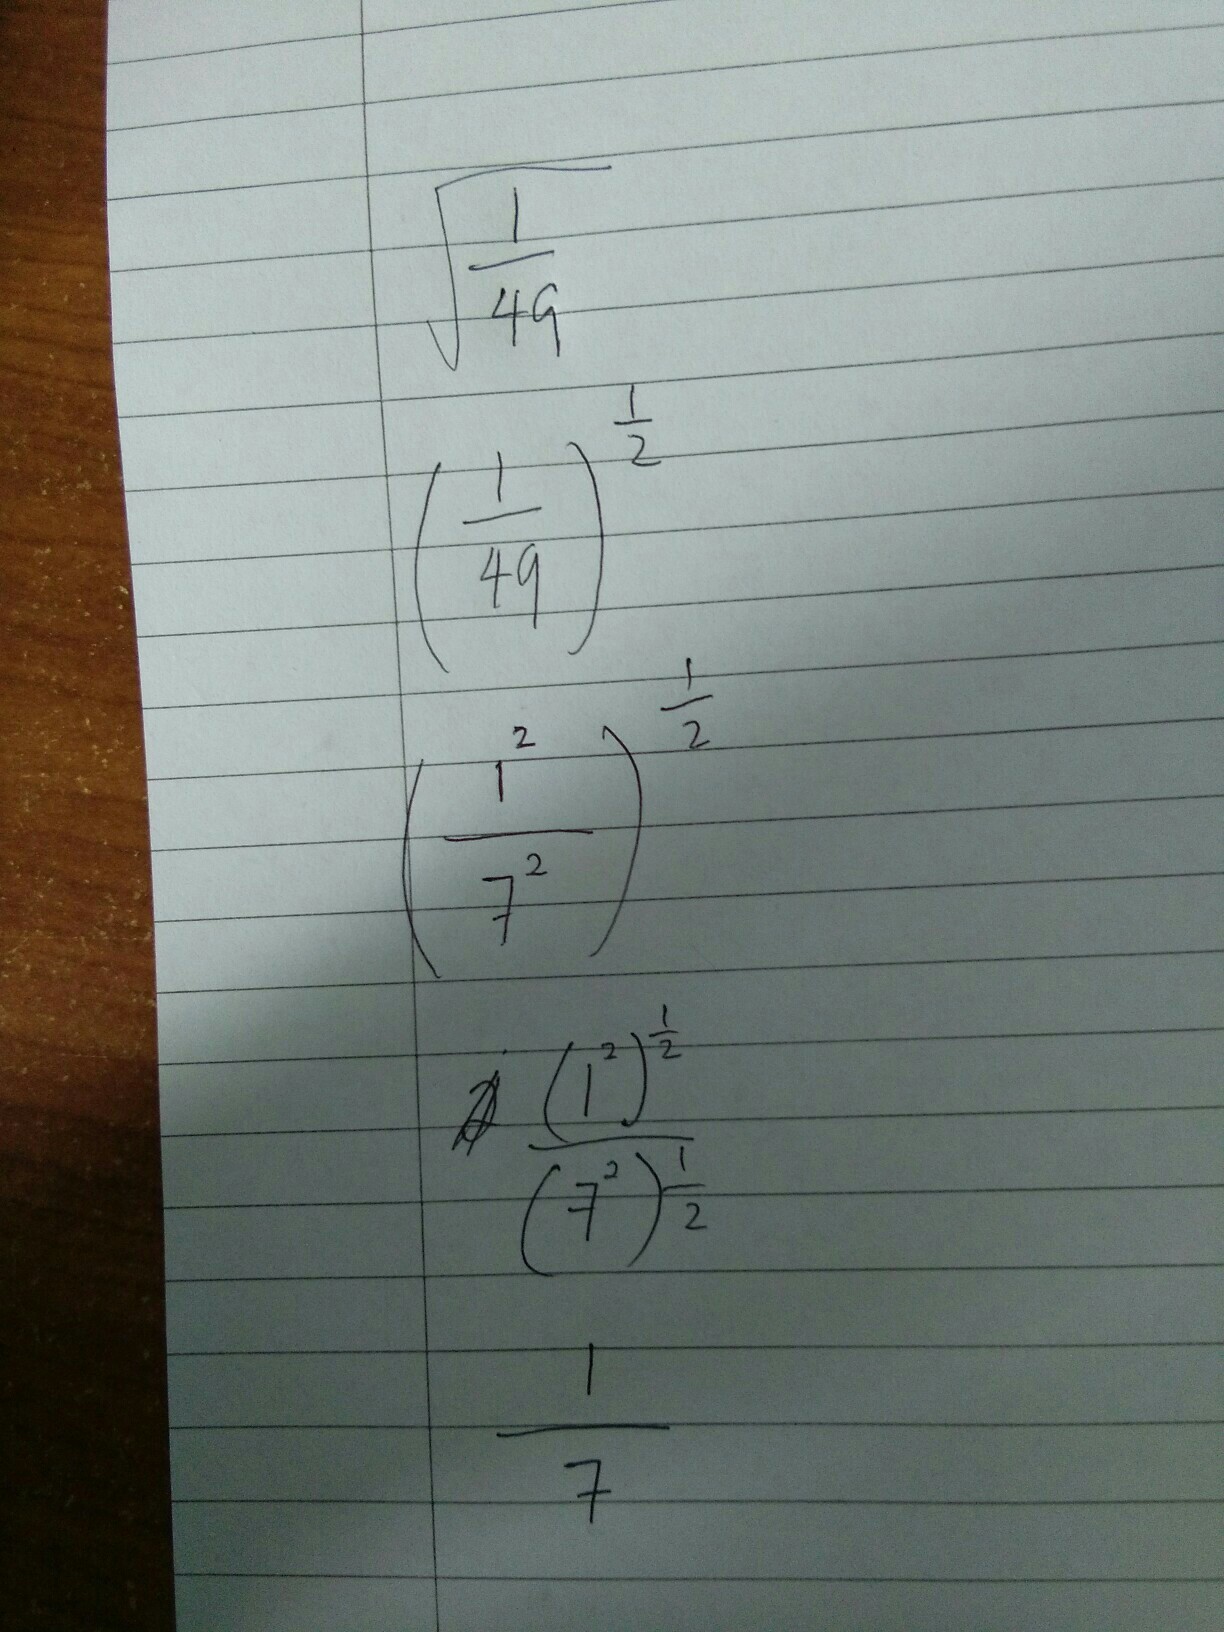 √(1/49)
(1/49)^(1/2)
(1²/7²)^(1/2)
(1²)^(1/2) / (7²)^(1/2)
1/7